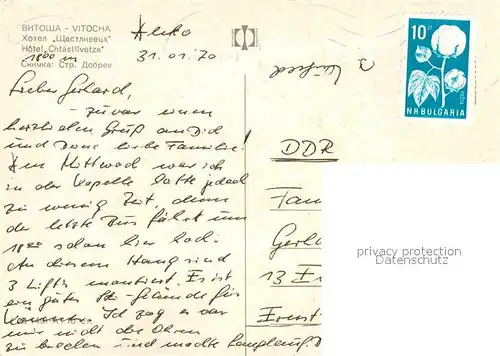 ВИТОША - VITOCHA
Хотел „Щастливеца"
Hôtel „Chtastlivetza"
1800 m
Снимка: Стр. Добрев
Aleko
31.01.70
Lieber Gerhard,
- zuvor einen
herzlichen Gruß an Dich
und Deine liebe Familie!
Am Mittwoch war ich
in der Kapelle hatte jedoch
zu wenig Zeit, denn
der letzte Bus fährt um
18 schon hier hoch.
An diesem Hang sind
3 Lifts montiert. Es ist
ein gutes Ski-Gelände für
Ich zog es vor
mir nicht die Ohren
zu brechen und machte Langlauf
10
НР BULGARIA
DDR
Fam
Gerh
13
Ernst
privacy protection
Datenschutz